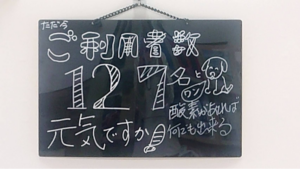 ただ今
ご利用者数
127名と
ロン
酸素があれば
何にも出来る
元気ですか